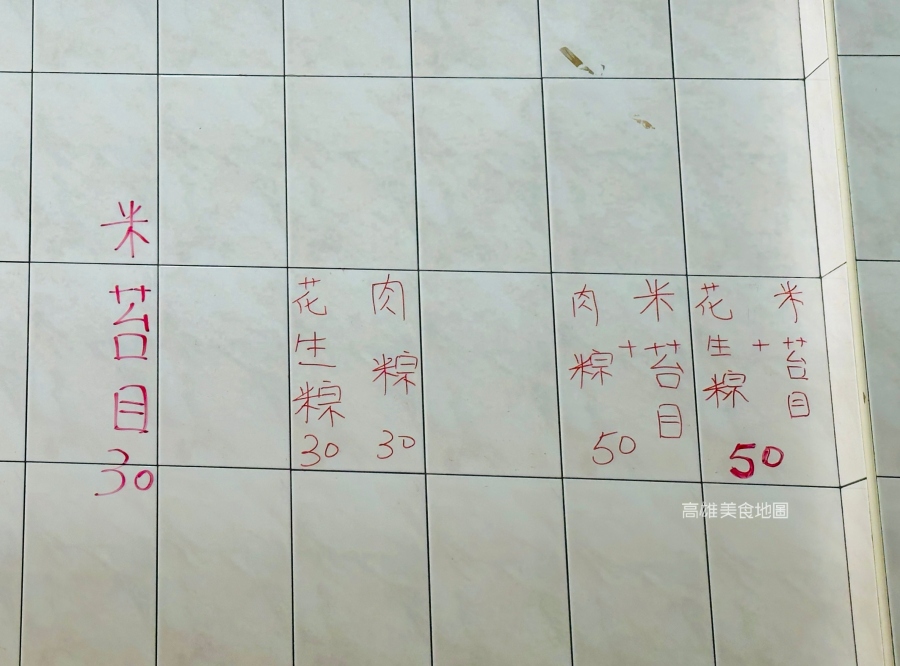 米苔目30
花生粽30
肉粽30
肉粽+米苔目50
花生粽+米苔目50
高雄美食地圖